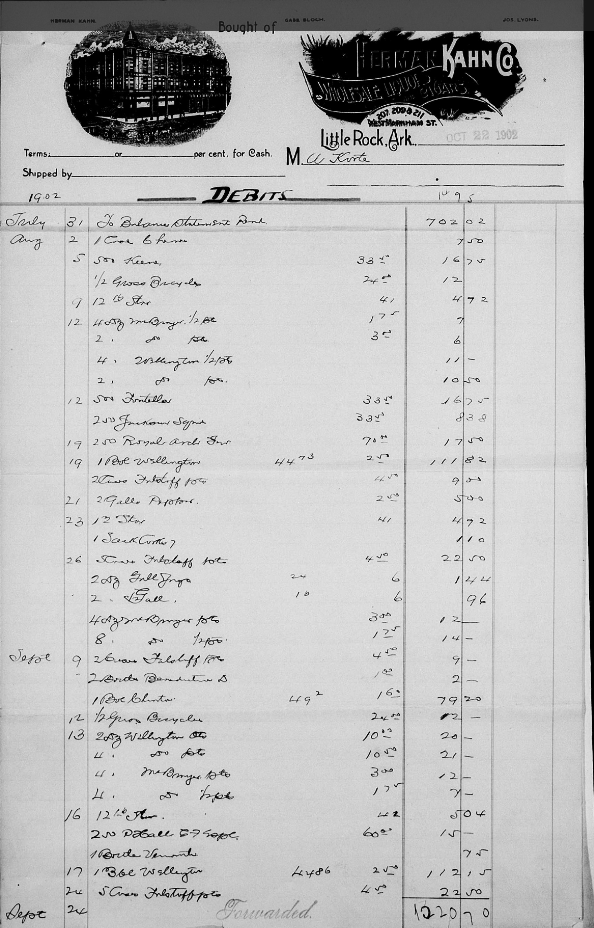 HERMAN KAHN. GABE BLOCH. JOS. LYONS.
Bought of
HERMAN KAHN Co.
WHOLESALE LIQUORS CIGARS
207, 209 & 211
WEST MARKHAM ST.
Little Rock, Ark. OCT 22 1902
Terms: or per cent. for Cash.
M. A Korte
Shipped by
1902 DEBITS
July 31 To Balance Statement Rend 702 02
Aug 2 1 Case 7 50
5 500 33 50 16 75
1/2 Gross Bicycles 24 00 12
9 12 Star 41 4 92
12 4 Dz McBrayer 1/2 pts 1 75 7
2 " do pts 3 00 6
4 " Wellington 1/2 pts 11 —
2 " do pts. 10 50
12 500 33 50 16 75
250 Jackson Sqre 33 50 8 38
19 250 Royal Arch 70 00 17 50
19 1 Bbl Wellington 44 73 2 50 111 82
2 Cases Falstaff pts 4 50 9 00
21 2 Galls 2 50 5 00
23 12 Star 41 4 92
1 Sack Corks 1 10
26 5 Cases Falstaff pts 4 50 22 50
2 Dz Gall Jugs 24 6 1 44
2 " 1/2 Gall. 16 6 96
4 Dz McBrayer pts 3 00 12 —
8 " do 1/2 pts 1 75 14 —
Sept 9 2 Cases Falstaff pts 4 50 9 —
2 Bottles Benedictine D 1 00 2 —
1 Bbl 49 2 1 60 79 20
12 1/2 Gross Bicycles 24 00 12 —
13 2 Dz Wellington Qts 10 00 20 —
4 " do pts 10 50 21 —
4 " McBrayer pts 3 00 12 —
4 " do 1/2 pts 1 75 7 —
16 12 Star 42 5 04
250 60 00 15 —
1 Bottle Vermouth 75
17 1 Bbl Wellington 44 86 2 50 112 15
24 5 Cases Falstaff pts 4 50 22 50
Sept 24 Forwarded. 1220 70